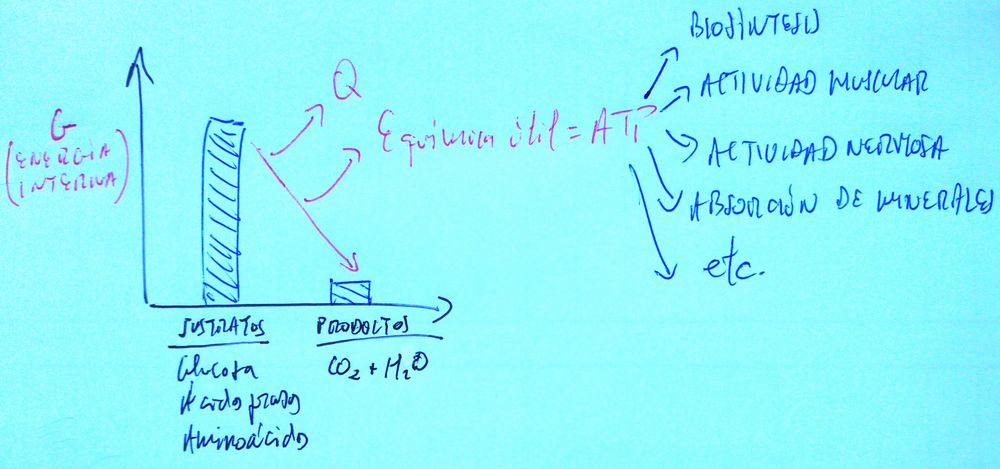 G
(ENERGÍA
INTERNA)
Q
Equímica útil = ATP
BIOSÍNTESIS
ACTIVIDAD MUSCULAR
ACTIVIDAD NERVIOSA
ABSORCIÓN DE MINERALES
etc.
SUSTRATOS
Glucosa
Ácido graso
Aminoácido
PRODUCTOS
CO₂ + H₂O